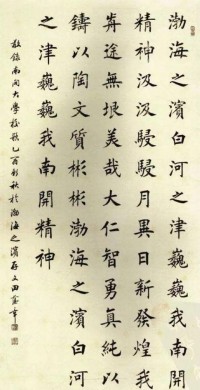 渤海之濱白河之津巍巍我南開
精神汲汲駸駸月異日新發煌我
歬途無垠美哉大仁智勇真純以
鑄以陶文質彬彬渤海之濱白河
之津巍巍我南開精神
敬錄南開大學校歌乙酉秋於渤海之濱田蘊章